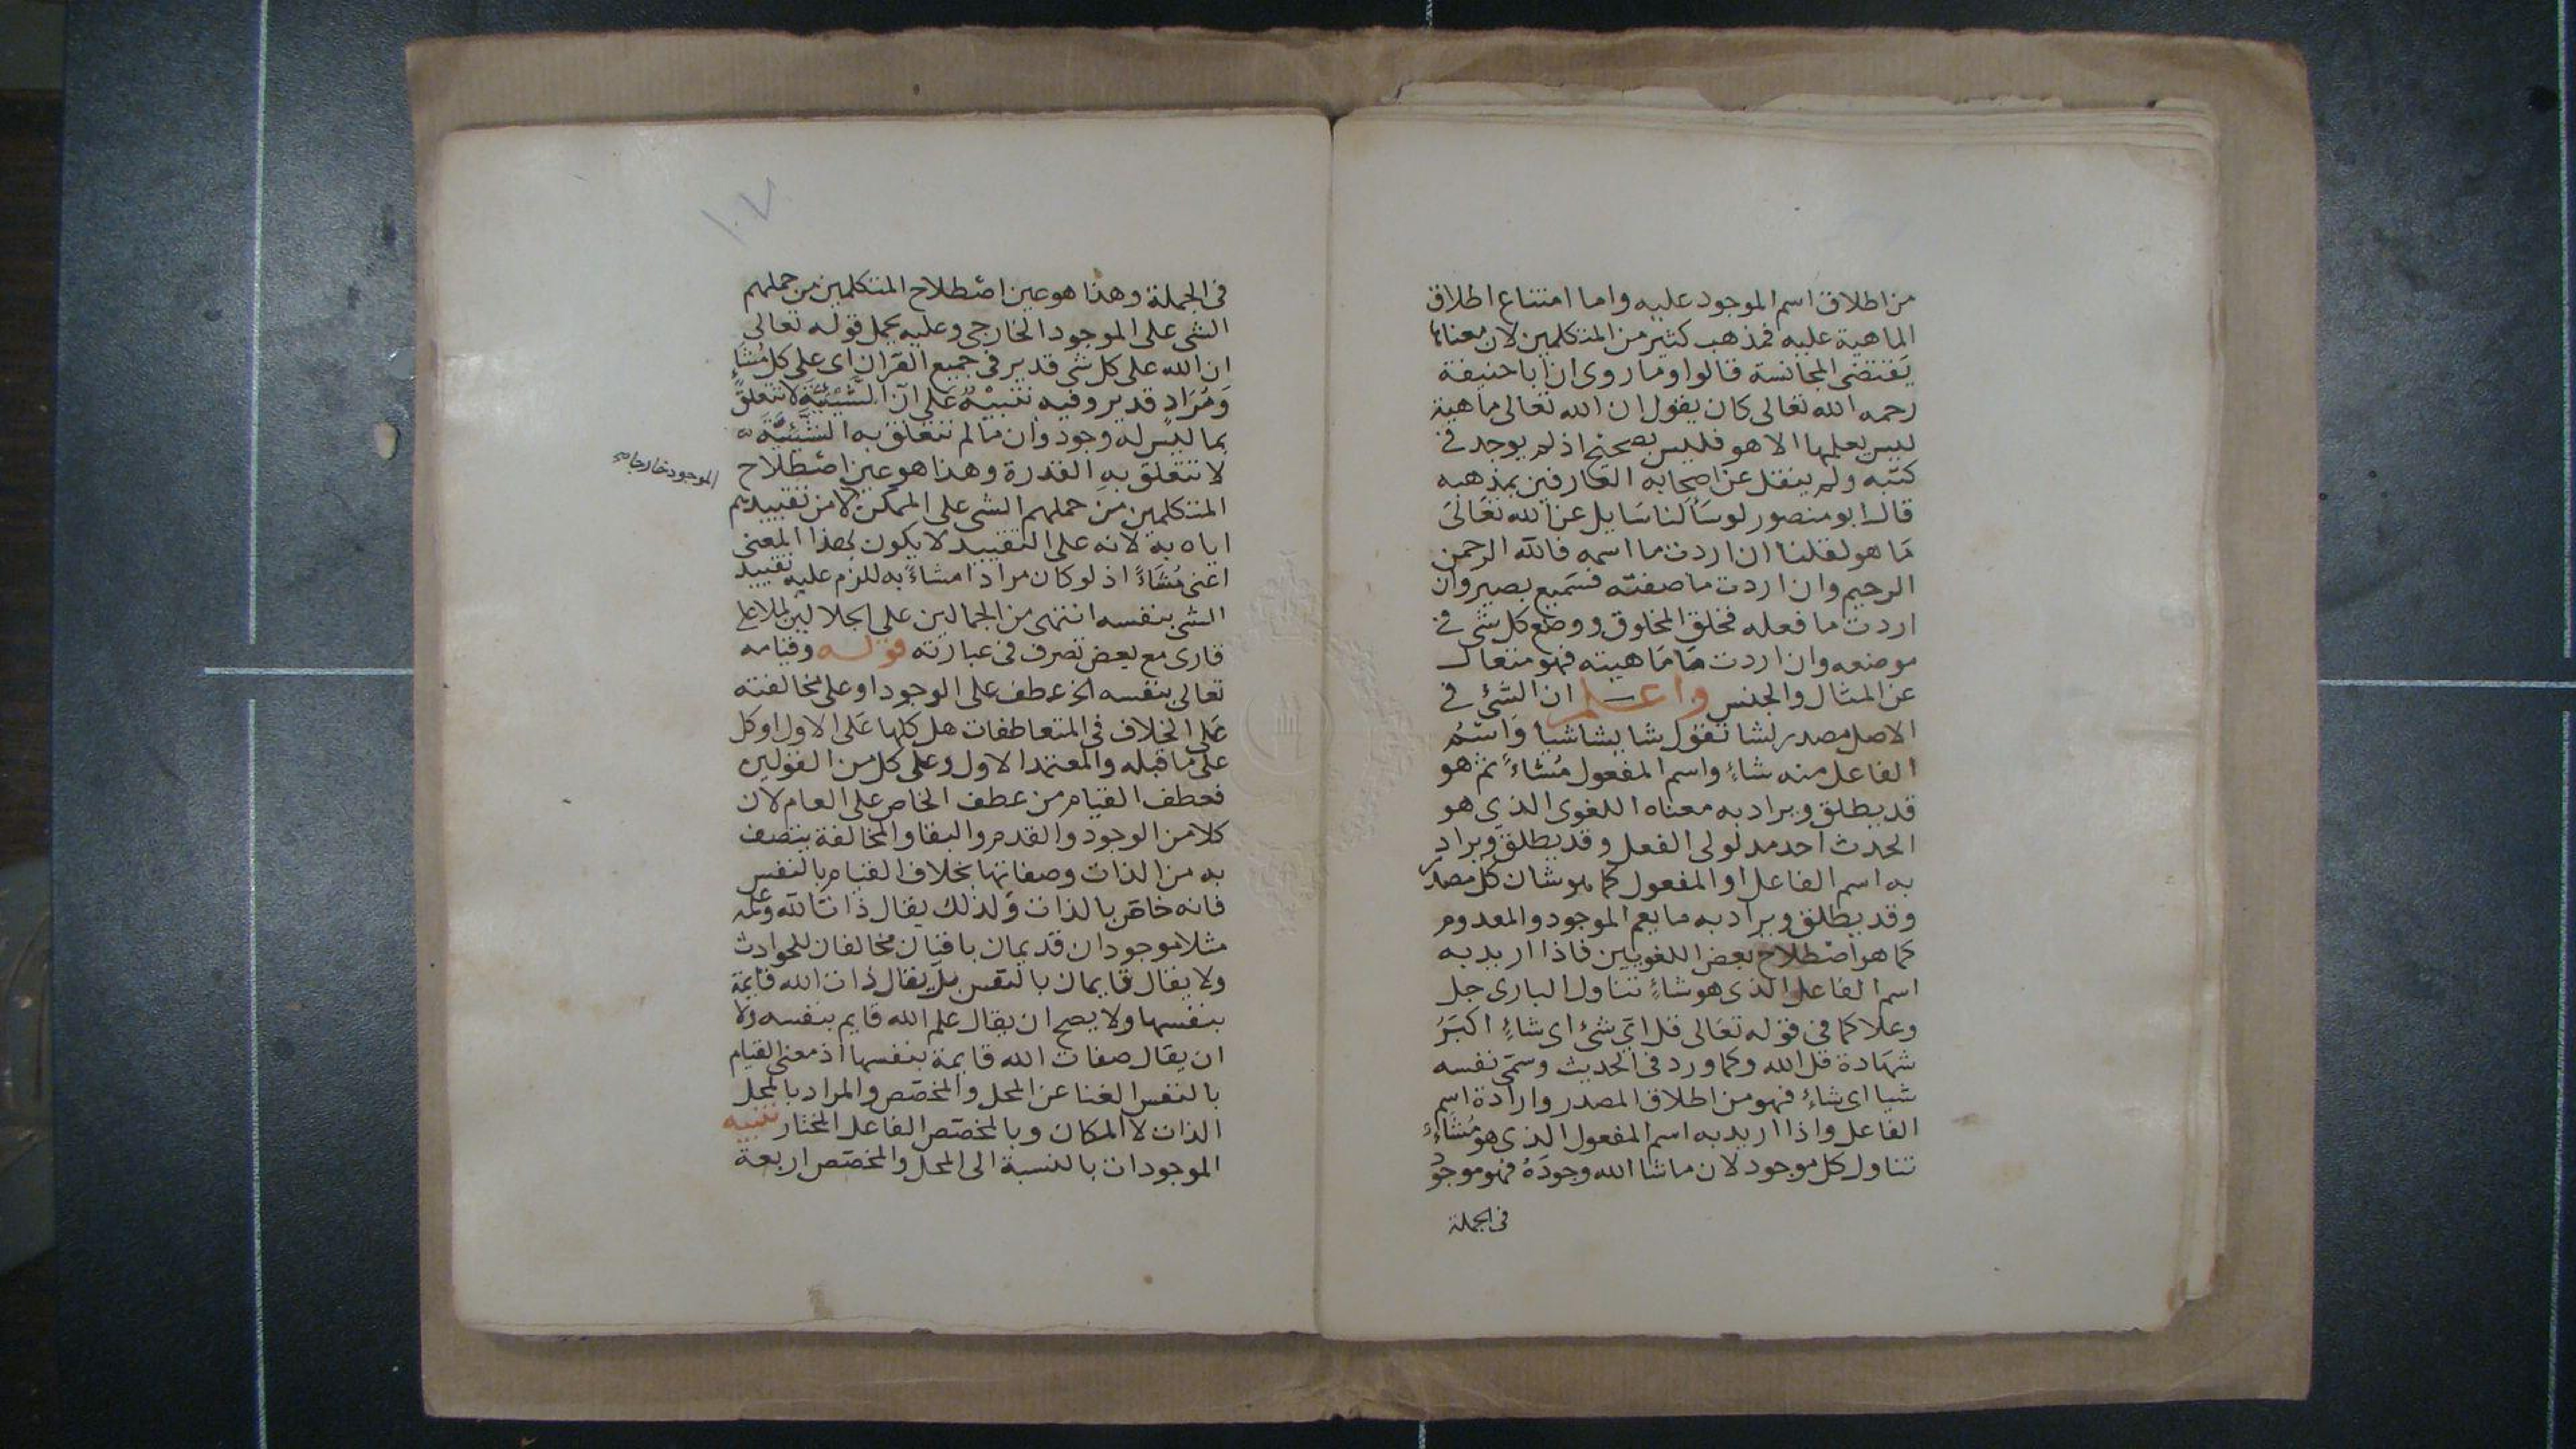 من اطلاق اسم الموجود عليه واما امتناع اطلاق
الماهية عليه فمذهب كثير من المتكلمين لان معناها
يقتضى المجانسة قالوا وما روى ان ابا حنيفة
رحمه الله تعالى كان يقول ان الله تعالى ماهية
ليس يعلمها الا هو فليس بصحيح اذ لم يوجد فى
كتبه ولم ينقل عن اصحابه العارفين بمذهبه
قال ابو منصور لو سألنا سايل عن الله تعالى
ما هو لقلنا ان اردت ما اسمه فالله الرحمن
الرحيم وان اردت ما صفته فسميع بصير وان
اردت ما فعله فخلق المخلوق ووضع كل شى فى
موضعه وان اردت ما ماهيته فهو متعال
عن المثال والجنس واعلم ان الشئ فى
الاصل مصدر لشا تقول شا يشا شيا واسم
الفاعل منه شاءٍ واسم المفعول مُشاءً ثم هو
قد يطلق ويراد به معناه اللغوى الذى هو
الحدث احد مدلولى الفعل وقد يطلق ويراد
به اسم الفاعل او المفعول كما هو شان كل مصدر
وقد يطلق ويراد به ما يعم الموجود والمعدوم
كما هو اصطلاح بعض اللغويين فاذا اريد به
اسم الفاعل الذى هو شاءٍ تناول البارى جل
وعلا كما فى قوله تعالى قل اى شئ اى شاءٍ اكبر
شهادة قل الله وكما ورد فى الحديث وسمى نفسه
شيا اى شاءٍ فهو من اطلاق المصدر وارادة اسم
الفاعل واذا اريد به اسم المفعول الذى هو مُشاءٍ
تناول كل موجود لان ما شا الله وجوده فهو موجود
فى الجملة
١٠٧
فى الجملة وهذا هو عين اصطلاح المتكلمين من حملهم
الشى على الموجود الخارجى وعليه يحمل قوله تعالى
ان الله على كل شى قدير فى جميع القران اى على كل مُشاءٍ
ومُرَادٍ قدير وفيه تنبيه على ان الشيئية لا تتعلق
بما ليس له وجود وان ما لم تتعلق به الشيئية
لا تتعلق به القدرة وهذا هو عين اصطلاح
المتكلمين من حملهم الشى على الممكن لا من تقييدهم
الموجود خارجا صح
اياه به لانه على التقييد لا يكون بهذا المعنى
اعنى مُشاءً اذ لو كان مرادا مشاءً به للزم عليه تقييد
الشى بنفسه انتهى من الجمالين على الجلالين لملا على
قارى مع بعض تصرف فى عبارته قوله وقيامه
تعالى بنفسه الخ عطف على الوجود او على مخالفته
على الخلاف فى المتعاطفات هل كلها على الاول او كل
على ما قبله والمعتمد الاول وعلى كل من القولين
فعطف القيام من عطف الخاص على العام لان
كلا من الوجود والقدم والبقا والمخالفة يتصف
به من الذات وصفاتها بخلاف القيام بالنفس
فانه خاص بالذات ولذلك يقال ذات الله وعلمه
مثلا موجودان قديمان باقيان مخالفان للحوادث
ولا يقال قايمان بالنفس بل يقال ذات الله قايمة
بنفسها ولا يصح ان يقال علم الله قايم بنفسه ولا
ان يقال صفات الله قايمة بنفسها اذ معنى القيام
بالنفس الغنا عن المحل والمخصص والمراد بالمحل
الذات لا المكان وبالمخصص الفاعل المختار تنبيه
الموجودات بالنسبة الى المحل والمخصص اربعة